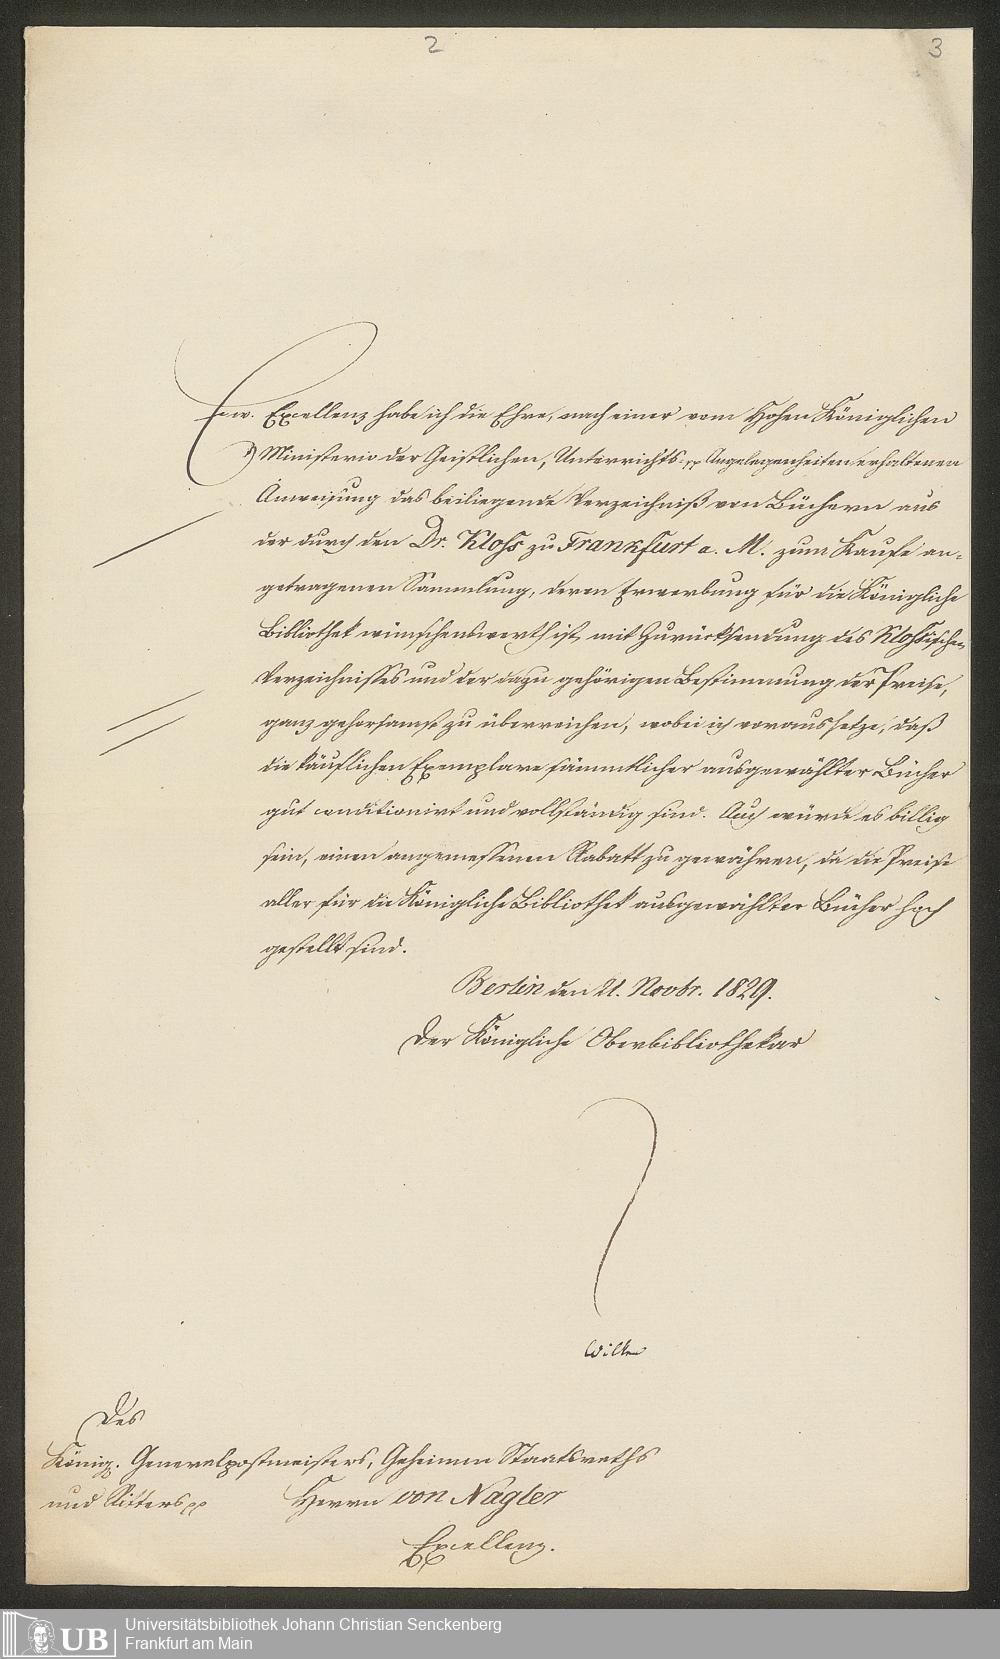 2
3
Ew. Excellenz habe ich die Ehre, nach einer vom Hohen Königlichen
Ministerio der Geistlichen, Unterrichts- pp Angelegenheiten erhaltenen
Anweisung das beiliegende Verzeichniß von Büchern aus
der durch den Dr. Kloss zu Frankfurt a. M. zum Kaufe an-
getragenen Sammlung, deren Erwerbung für die Königliche
Bibliothek wünschenswerth ist, mit Zurücksendung des Kloßischen
Verzeichnisses und der dazu gehörigen Bestimmung der Preise,
ganz gehorsamst zu überreichen, wobei ich voraussetze, daß
die käuflichen Exemplare sämmtlicher ausgewählter Bücher
gut conditionirt und vollständig sind. Auch würde es billig
sein, einen angemessenen Rabatt zu gewähren, da die Preise
aller für die Königliche Bibliothek ausgewählter Bücher hoch
gestellt sind.
Berlin den 21. Novbr. 1829.
Der Königliche Oberbibliothekar
Wilken
Des
Königl. Generalpostmeisters, Geheimen Staatsraths
und Ritters pp Herrn von Nagler
Excellenz.
UB
Universitätsbibliothek Johann Christian Senckenberg
Frankfurt am Main